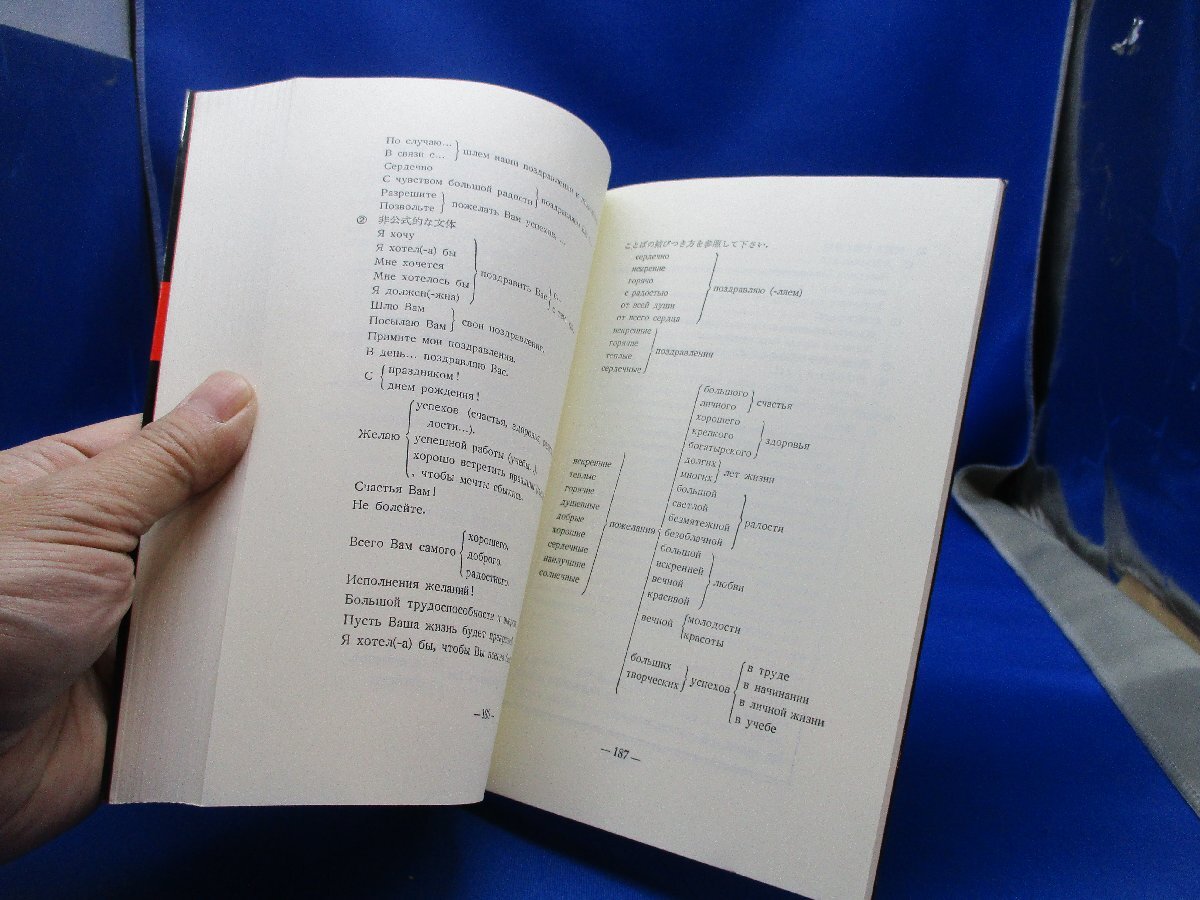 По случаю...
В связи с... } шлем наши поздравления и
Сердечно
С чувством большой радости } поздравляем
Разрешите
Позвольте } пожелать Вам успехов ...
② 非公式的な文体
Я хочу
Я хотел(-а) бы
Мне хочется
Мне хотелось бы
Я должен(-жна)
поздравить Вас { с...
Шлю Вам
Посылаю Вам } свои поздравления.
Примите мои поздравления.
В день... поздравляю Вас.
С { праздником!
днем рождения!
Желаю { успехов (счастья, здоровья,
лости...).
успешной работы (учебы...).
хорошо встретить праздник
, чтобы мечты сбылись.
Счастья Вам!
Не болейте.
Всего Вам самого { хорошего.
доброго.
радостного.
Исполнения желаний!
Большой трудоспособности и
Пусть Ваша жизнь будет
Я хотел(-а) бы, чтобы Вы
ことばの結びつき方を参照して下さい.
сердечно
искренне
горячо
с радостью
от всей души
от всего сердца
поздравляю (-ляем)
искренние
горячие
теплые
сердечные
поздравления
искренние
теплые
горячие
душевные
добрые
хорошие
сердечные
наилучшие
солнечные
пожелания
большого
личного } счастья
хорошего
крепкого
богатырского } здоровья
долгих
многих } лет жизни
большой
светлой
безмятежной
безоблачной } радости
большой
искренней
вечной
красивой } любви
вечной { молодости
красоты
больших
творческих } успехов { в труде
в начинании
в личной жизни
в учебе
— 187 —